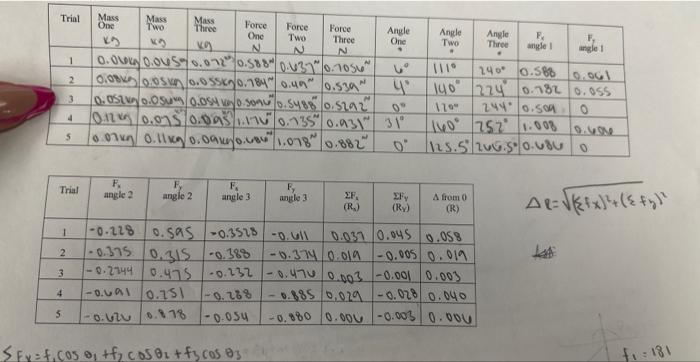 Trial Mass One Mass Two Mass Three Force One Force Two Force Three Angle One Angle Two Angle Three Fx angle 1 Fy angle 1
kg kg kg N N N
1 0.060kg 0.065kg 0.072kg 0.588N 0.637N 0.7056N 6° 111° 240° 0.588 0.061
2 0.08kg 0.05kg 0.055kg 0.784N 0.49N 0.539N 4° 140° 224° 0.782 0.055
3 0.052kg 0.056kg 0.054kg 0.5096N 0.5488N 0.5292N 0° 120° 244° 0.509 0
4 0.12kg 0.075 0.095 1.176N 0.735N 0.931N 31° 160° 252° 1.008 0.606
5 0.07kg 0.11kg 0.09kg 0.686N 1.078N 0.882N 0° 125.5° 266.5° 0.686 0
Trial Fx angle 2 Fy angle 2 Fx angle 3 Fy angle 3 ΣFx (Rx) ΣFy (Ry) Δ from 0 (R)
ΔR=√(Σfx)²+(Σfy)²
1 -0.228 0.595 -0.3528 -0.611 0.037 0.045 0.058
2 -0.375 0.315 -0.388 -0.374 0.019 -0.005 0.019
3 -0.2744 0.475 -0.232 -0.476 0.003 -0.001 0.003
4 -0.691 0.251 -0.288 -0.885 0.029 -0.028 0.040
5 -0.626 0.878 -0.054 -0.880 0.006 -0.003 0.006
ΣFx=f1cosθ1+f2cosθ2+f3cosθ3
f1=181